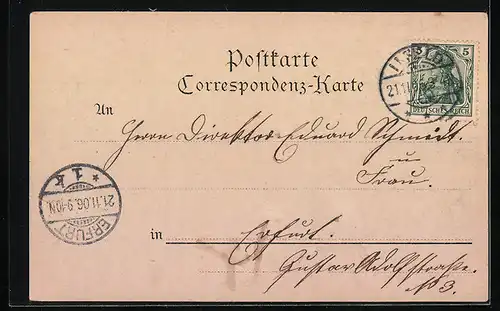 Postkarte
Correspondenz-Karte
5
DEUTSCHES REICH
21.11.06
An
Herrn Direktor Eduard Schmidt
u
Frau.
* 1.k *
21.11.06.9-10N.
ERFURT
in Erfurt.
Gustav Adolfstraße
No 3.